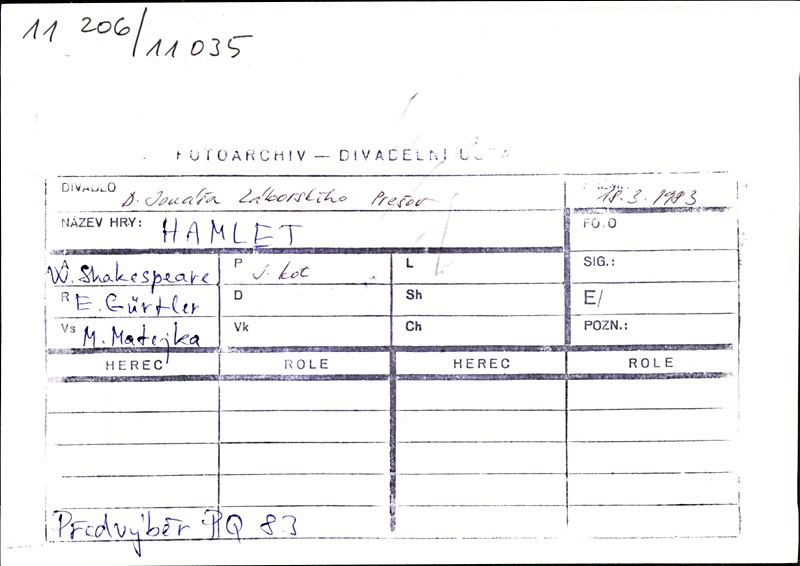 11 206/11 035
FOTOARCHIV — DIVADELNÍ
DIVADLO D. Jonáša Záborského Prešov 18.3.1983
NÁZEV HRY: HAMLET FOTO
A W. Shakespeare P J. Kot L SIG.:
R E. Gürtler D Sh E/
Vs M. Matejka Vk Ch POZN.:
HEREC ROLE HEREC ROLE
Předvýběr PQ 83